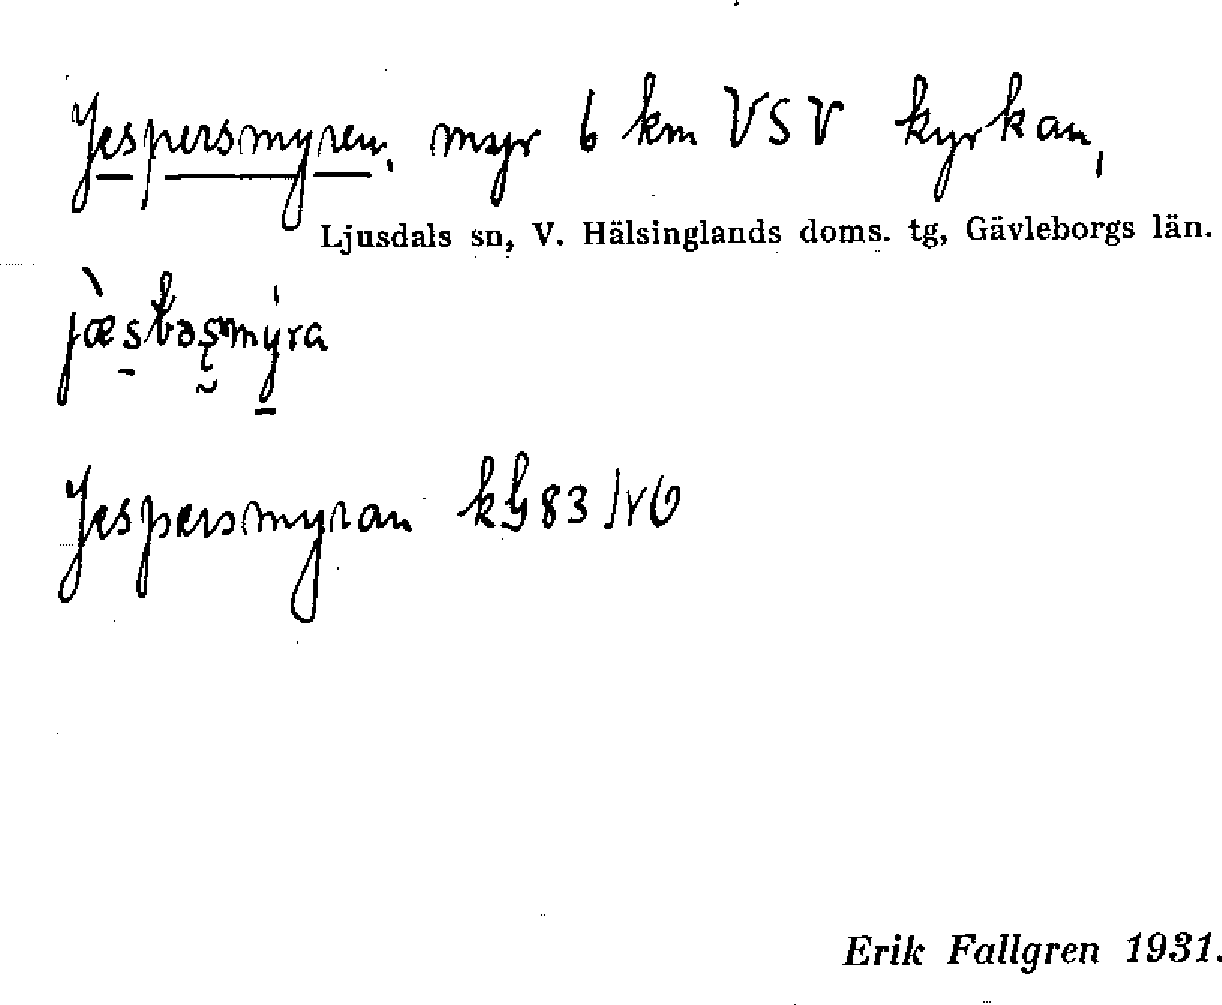 Jespersmyren, myr 6 km VSV kyrkan,
Ljusdals sn, V. Hälsinglands doms. tg, Gävleborgs län.
Jespersmyran
Erik Fallgren 1931.